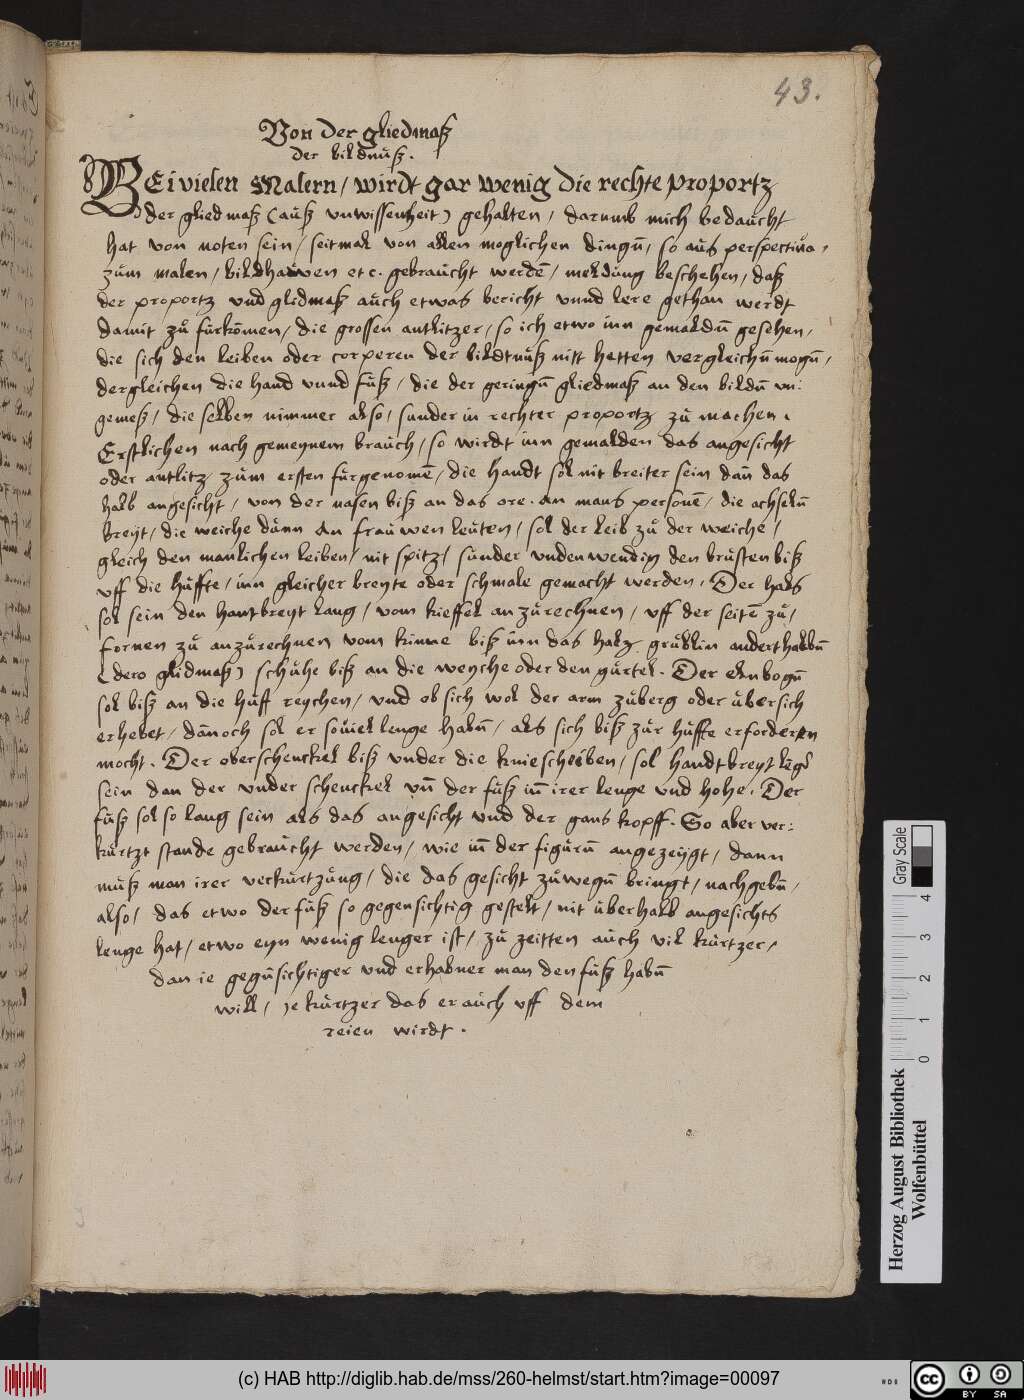 43.
Von der gliedmaß
der bildnuß.
BEi vielen Malern / wirdt gar wenig die rechte proportz
der gliedmaß (auß vnwissenheit) gehalten / darumb mich bedaucht
hat von noten sein / seitmal von allen moglichen dingn̄ / so aus perspectiua /
zum malen / bildhauwen etc. gebraucht werdē / meldung beschehen / daß
der proportz vnd glidmaß auch etwas bericht vnnd lere gethan werdt
damit zu furkōmen / die grossen antlitzer / so ich etwo inn gemaldn̄ gesehen /
die sich den leiben oder corperen der bildtnuß nitt hetten vergleichn̄ mogn̄ /
dergleichen die hand vnnd fuß / die der geringn̄ gliedmaß an den bildn̄ vn:
gemeß / die selben nimmer also / sunder in rechter proportz zu machen.
Erstlichen nach gemeynem brauch / so wirdt inn gemalden das angesicht
oder antlitz zum ersten furgenomē / die handt sol nit breiter sein dañ das
halb angesicht / von der nasen biß an das ore. An mans personē / die achseln̄
breyt / die weiche dünn An frauwen leuten / sol der leib zu der weiche /
gleich den manlichen leiben / nit spitz / sunder vnden wendig den brusten biß
vff die huffte / inn gleicher breyte oder schmale gemacht werden. Der hals
sol sein den hantbreyt lang / vom kieffel an zurechnen / vff der seitē zu /
fornen zu anzurechnen vom kinne biß inn das halß grublin anderthalbn̄
(dero glidmaß) schuhe biß an die weyche oder den gurtel. Der elnbogn̄
sol biß an die huff reychen / vnd ob sich wol der arm zuberg oder ubersich
erhebet / dānoch sol er souiel lenge habn̄ / als sich biß zur huffte erforderen
mocht. Der oberschenckel biß vnder die knieschiben / sol handtbreyt lēgʼ
sein dan der vnder schenckel vñ der fuß iñ irer lenge vnd hohe. Der
fuß sol so lang sein als das angesicht vnd der gans kopff. So aber ver:
kurtzt stande gebraucht werden / wie iñ der figurn̄ angezeygt / dann
muß man irer verkurtzung / die das gesicht zuwegn̄ bringt / nachgebn̄ /
also / das etwo der fuß so gegensichtig gestelt / nit uberhalb angesichts
lenge hat / etwo eyn wenig lenger ist / zu zeitten auch vil kurtzer /
dan ie gegn̄sichtiger vnd erhabner man den fuß habn̄
will / ye kurtzer das er auch vff dem
reien wirdt.
Herzog August Bibliothek
Wolfenbüttel
Gray Scale
0 1 2 3 4
(c) HAB http://diglib.hab.de/mss/260-helmst/start.htm?image=00097
cc BY SA